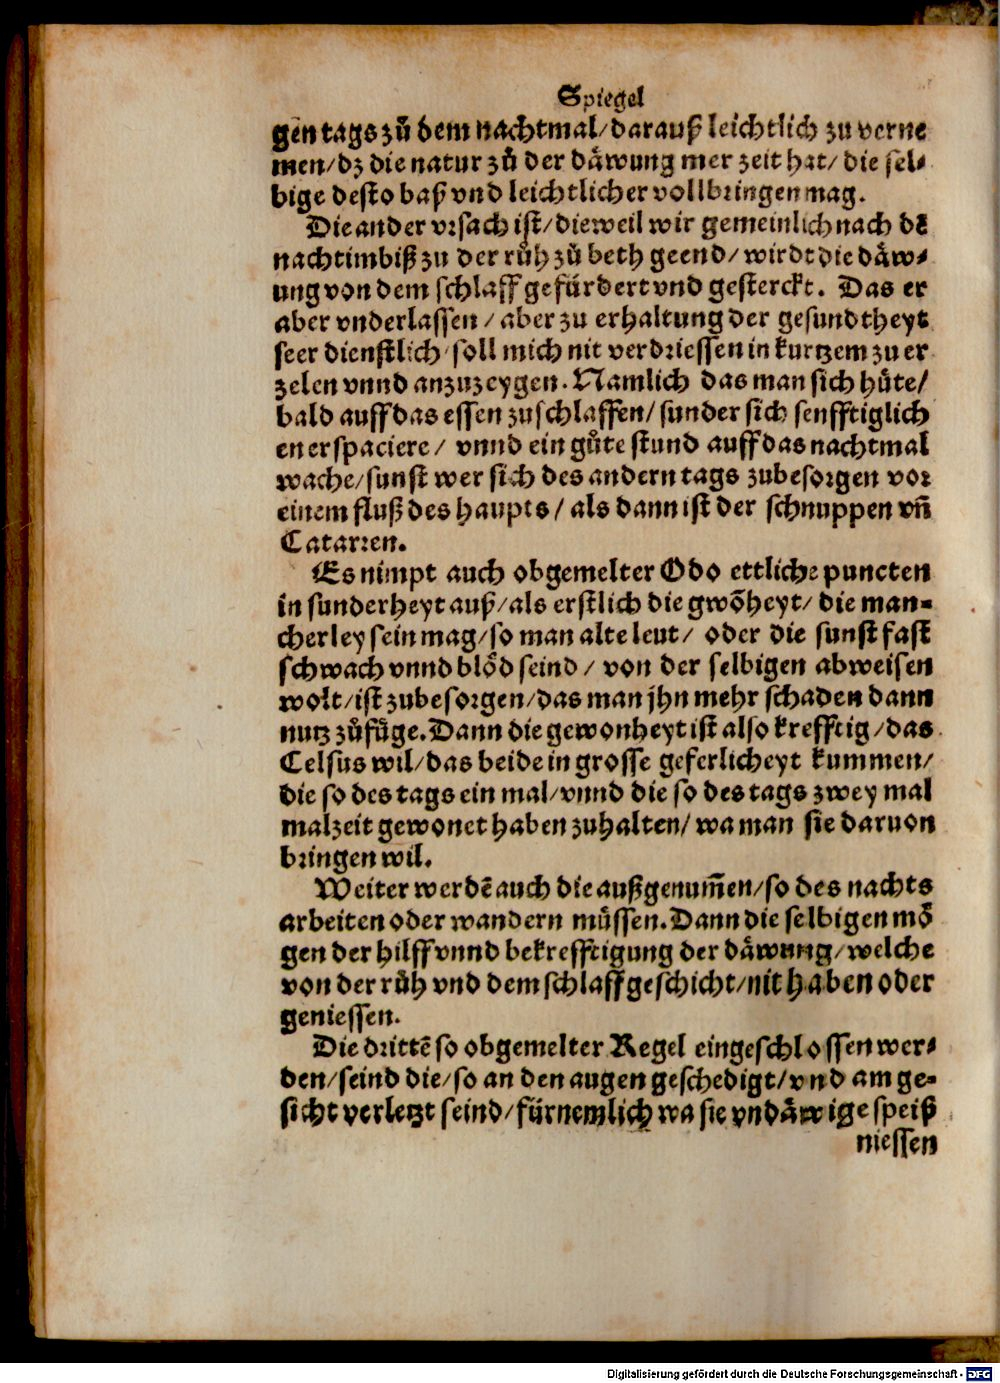 Spiegel
gen tags zů dem nachtmal/darauß leichtlich zu verne
men/dz die natur zů der däwung mer zeit hat/ die sel⸗
bige desto baß vnd leichtlicher vollbringen mag.
Die ander vrsach ist/dieweil wir gemeinlich nach dē
nachtimbiß zu der růh zů beth geend/ wirdt die däw⸗
ung von dem schlaff gefürdert vnd gesterckt. Das er
aber vnderlassen / aber zu erhaltung der gesundtheyt
seer dienstlich/ soll mich nit verdriessen in kurtzem zu er
zelen vnnd anzuzeygen. Namlich das man sich hůte/
bald auff das essen zuschlaffen/ sunder sich senfftiglich
en erspaciere/ vnnd ein gůte stund auff das nachtmal
wache/sunst wer sich des andern tags zubesorgen vor
einem fluß des haupts/ als dann ist der schnuppen vñ
Catarren.
Es nimpt auch obgemelter Odo ettliche puncten
in sunderheyt auß/als erstlich die gwōheyt/ die man⸗
cherley sein mag/so man alte leut/ oder die sunst fast
schwach vnnd blöd seind/ von der selbigen abweisen
wolt/ist zubesorgen/das man jhn mehr schaden dann
nutz zůfůge. Dann die gewonheyt ist also krefftig/das
Celsus wil/das beide in grosse geferlicheyt kummen/
die so des tags ein mal/vnnd die so des tags zwey mal
malzeit gewonet haben zuhalten/ wa man sie daruon
bringen wil.
Weiter werdē auch die außgenum̄en/so des nachts
arbeiten oder wandern müssen. Dann die selbigen mö
gen der hilff vnnd bekrefftigung der däwung/welche
von der růh vnd dem schlaff geschicht/nit haben oder
geniessen.
Die drittē so obgemelter Regel eingeschlossen wer⸗
den/seind die/so an den augen geschedigt/vnd am ge⸗
sicht verletzt seind/fürnemlich wa sie vndäwige speiß
niessen
Digitalisierung gefördert durch die Deutsche Forschungsgemeinschaft - DFG